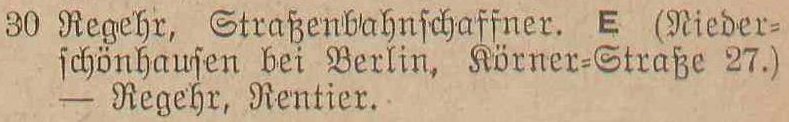 30 Regehr, Straßenbahnschaffner. E (Nieder-
schönhausen bei Berlin, Körner-Straße 27.)
— Regehr, Rentier.